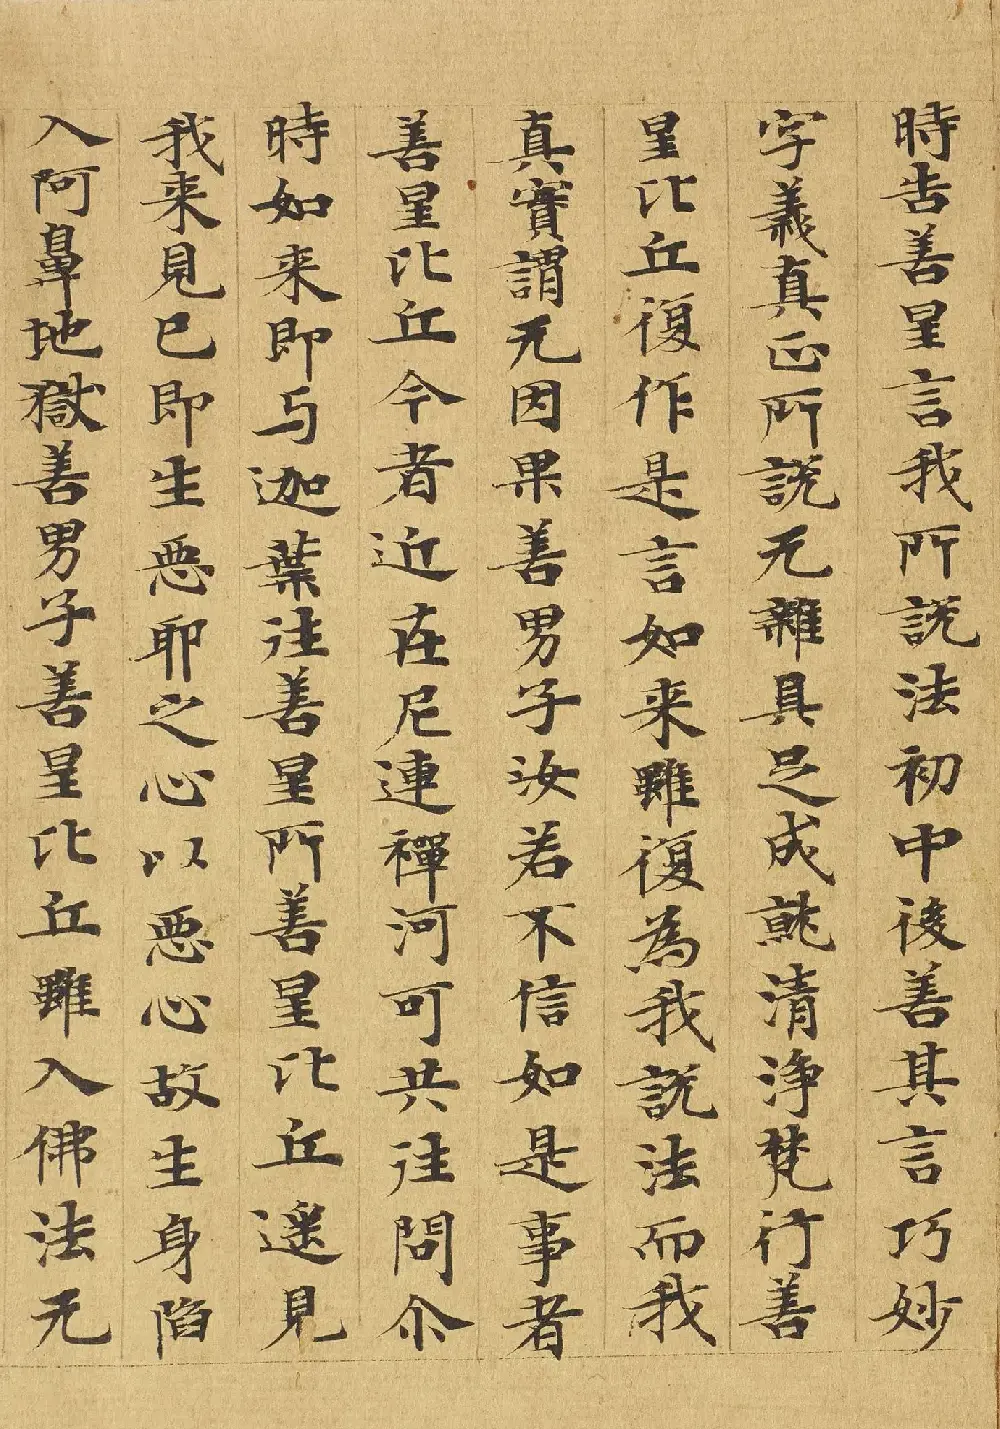 時告善星言我所説法初中後善其言巧妙
字義真正所説无雜具足成就清浄梵行善
星比丘復作是言如来雖復為我説法而我
真實謂无因果善男子汝若不信如是事者
善星比丘今者近在尼連禪河可共往問尒
時如来即与迦葉往善星所善星比丘遥見
我来見已即生惡耶之心以惡心故生身陷
入阿鼻地獄善男子善星比丘雖入佛法无